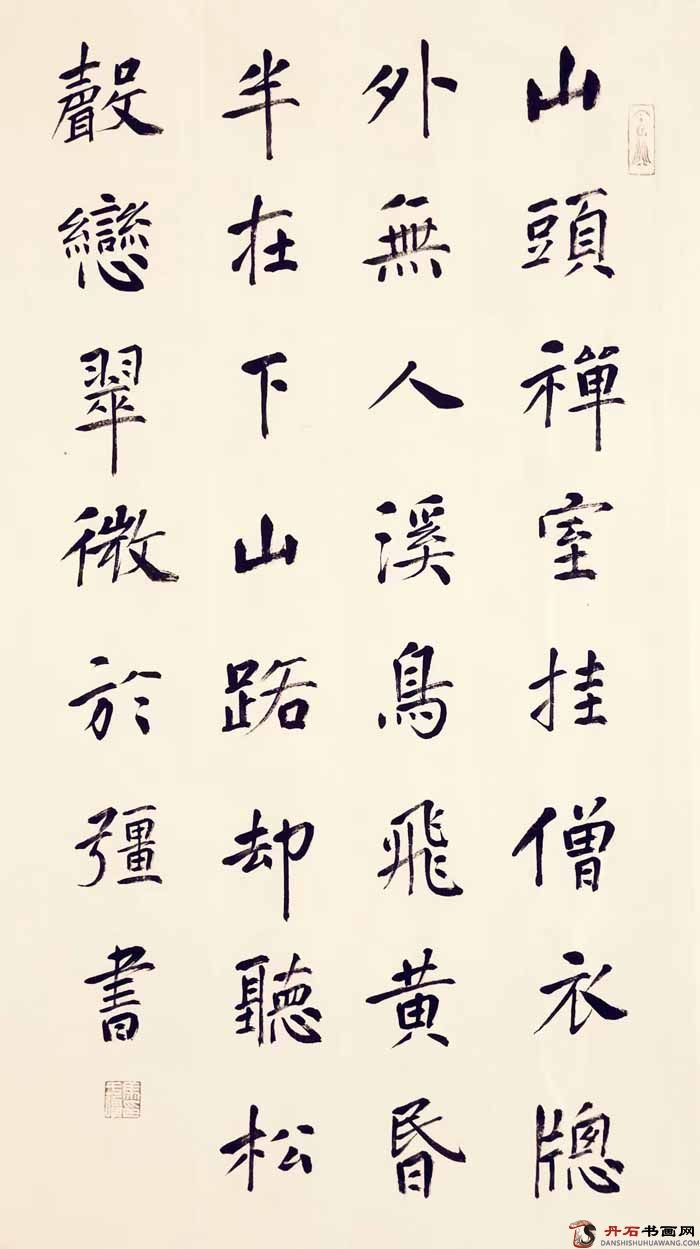 山頭禪室挂僧衣牕
外無人溪鳥飛黃昏
半在下山路却聽松
聲戀翠微於彊書
丹石书画网
DANSHISHUHUAWANG.COM